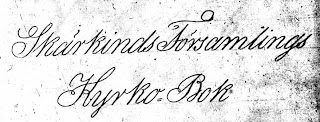 Skärkinds Församlings
Kyrko-Bok